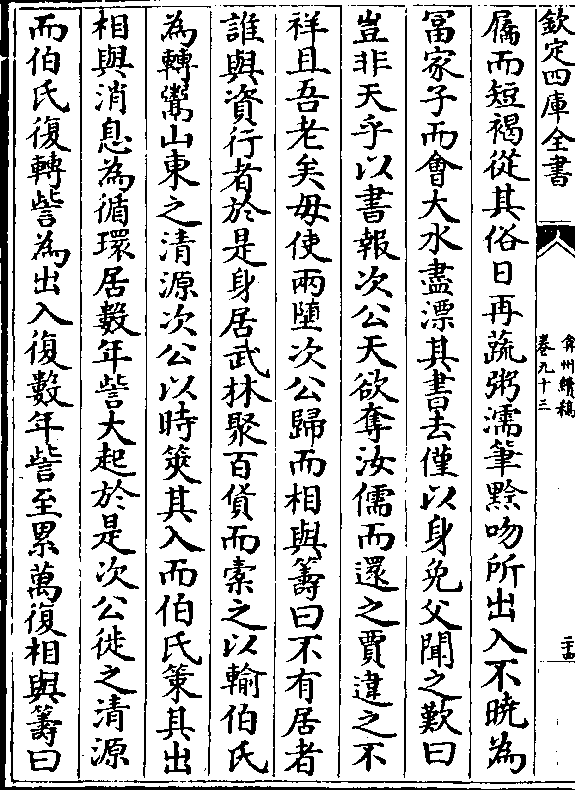 欽定四庫全書
弇州續稿
卷九十三
二十四
屩而短褐從其俗日再蔬粥濡筆黔吻所出入不曉為
冨家子而會大水盡漂其書去僅以身免父聞之歎曰
豈非天乎以書報次公天欲奪汝儒而還之賈違之不
祥且吾老矣毋使兩墮次公歸而相與籌曰不有居者
誰與資行者於是身居武林聚百貨而橐之以輸伯氏
為轉鬻山東之清源次公以時筴其入而伯氏筴其出
相與消息為循環居數年訾大起於是次公徙之清源
而伯氏復轉訾為出入復數年訾至累萬復相與籌曰